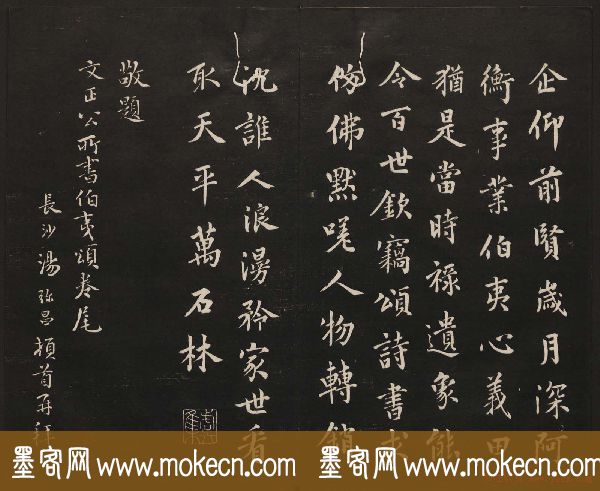 企仰前賢歲月深阿
衡事業伯夷心義
猶是當時祿遺象能
令百世欽竊頌詩書
彿默嗟人物轉銷
沈誰人浪漫矜家世看
取天平萬石林
敬題
文正公所書伯夷頌卷尾
長沙湯弥昌頓首再拜
墨客网 www.mokecn.com 墨客网 www.mokecn.com